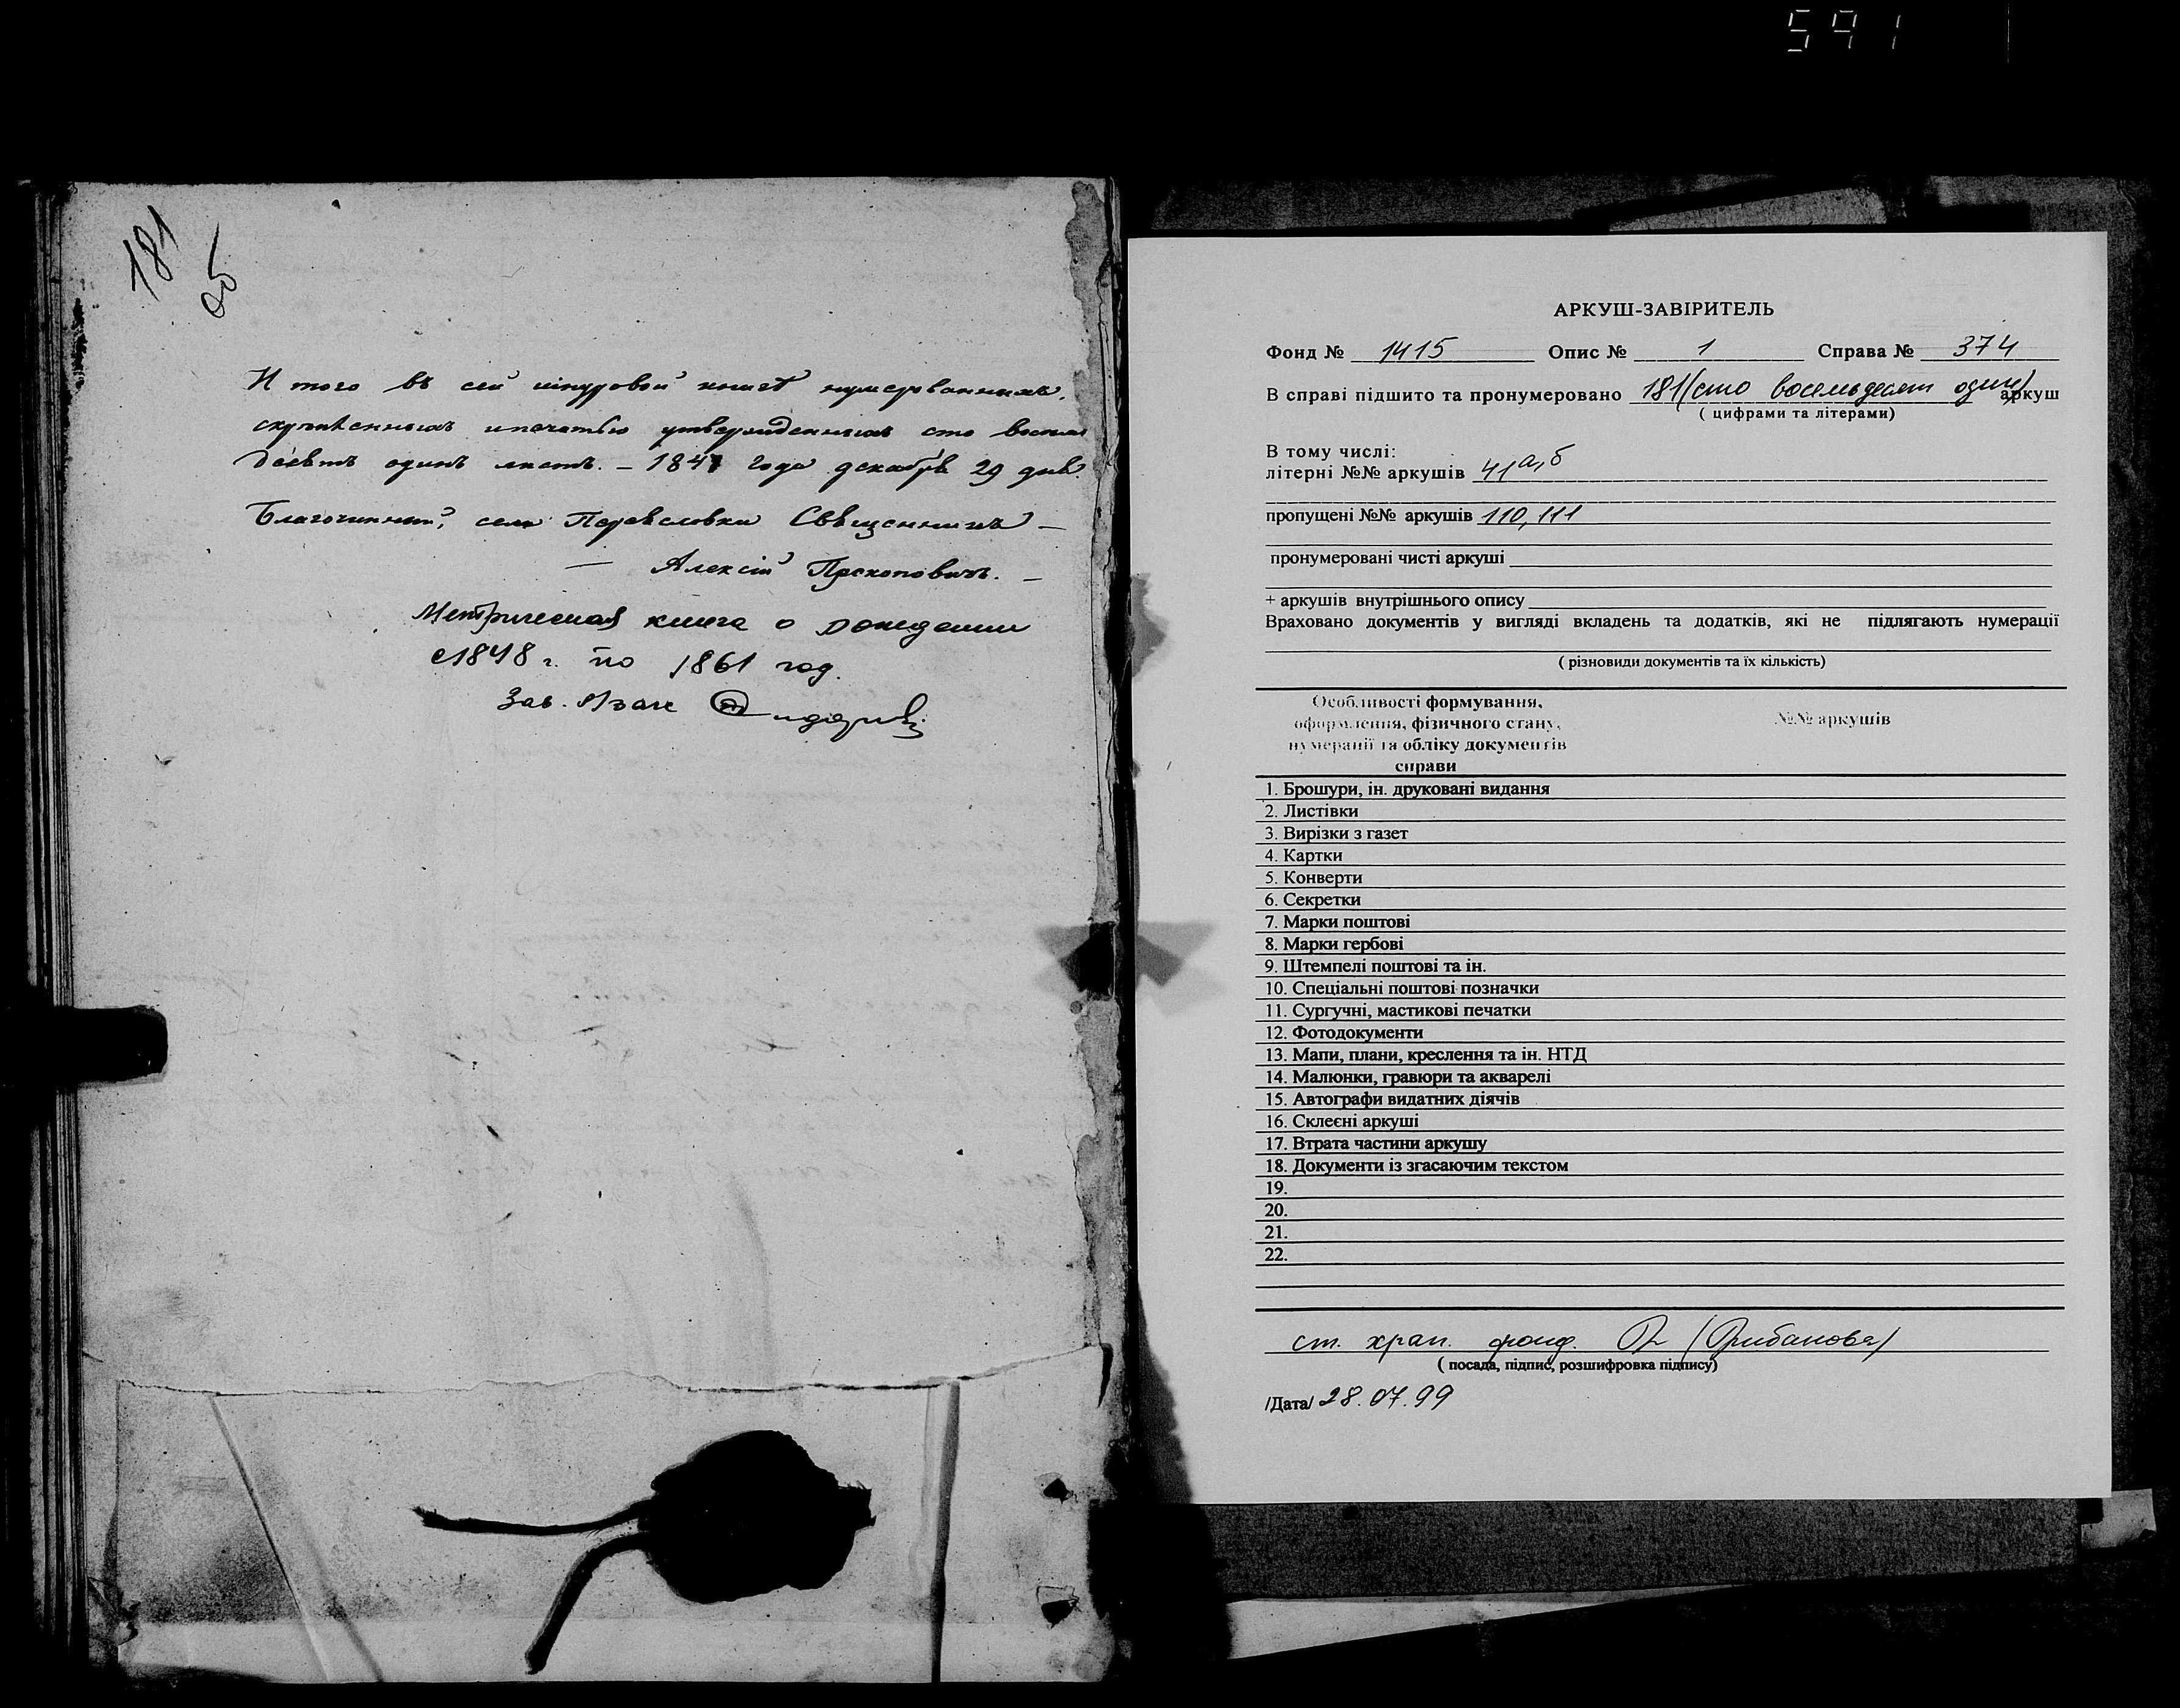 591
181
об
И того въ сей шнуровой книгѣ нумерованныхъ,
скрѣпленныхъ и печатью утвержденныхъ сто восемь
десятъ одинъ листъ. – 1847 года декабря 29 дня.
Благочинный, села Переясловки Священникъ –
– Алексій Прокоповичъ. –
Метрическая книга о рождении
с 1848 г. по 1861 год.
Зав.
АРКУШ-ЗАВІРИТЕЛЬ
Фонд № 1415 Опис № 1 Справа № 374
В справі підшито та пронумеровано 181 (сто восемьдесят один) аркуш
( цифрами та літерами)
В тому числі:
літерні №№ аркушів 41а,б
пропущені №№ аркушів 110, 111
пронумеровані чисті аркуші
+ аркушів внутрішнього опису
Враховано документів у вигляді вкладень та додатків, які не підлягають нумерації
( різновиди документів та їх кількість)
Особливості формування, №№ аркушів
оформлення, фізичного стану,
нумерації та обліку документів
справи
1. Брошури, ін. друковані видання
2. Листівки
3. Вирізки з газет
4. Картки
5. Конверти
6. Секретки
7. Марки поштові
8. Марки гербові
9. Штемпелі поштові та ін.
10. Спеціальні поштові позначки
11. Сургучні, мастикові печатки
12. Фотодокументи
13. Мапи, плани, креслення та ін. НТД
14. Малюнки, гравюри та акварелі
15. Автографи видатних діячів
16. Склеєні аркуші
17. Втрата частини аркушу
18. Документи із згасаючим текстом
19.
20.
21.
22.
ст. хран. фонд. (Грибанова)
( посада, підпис, розшифровка підпису)
/Дата/ 28.07.99